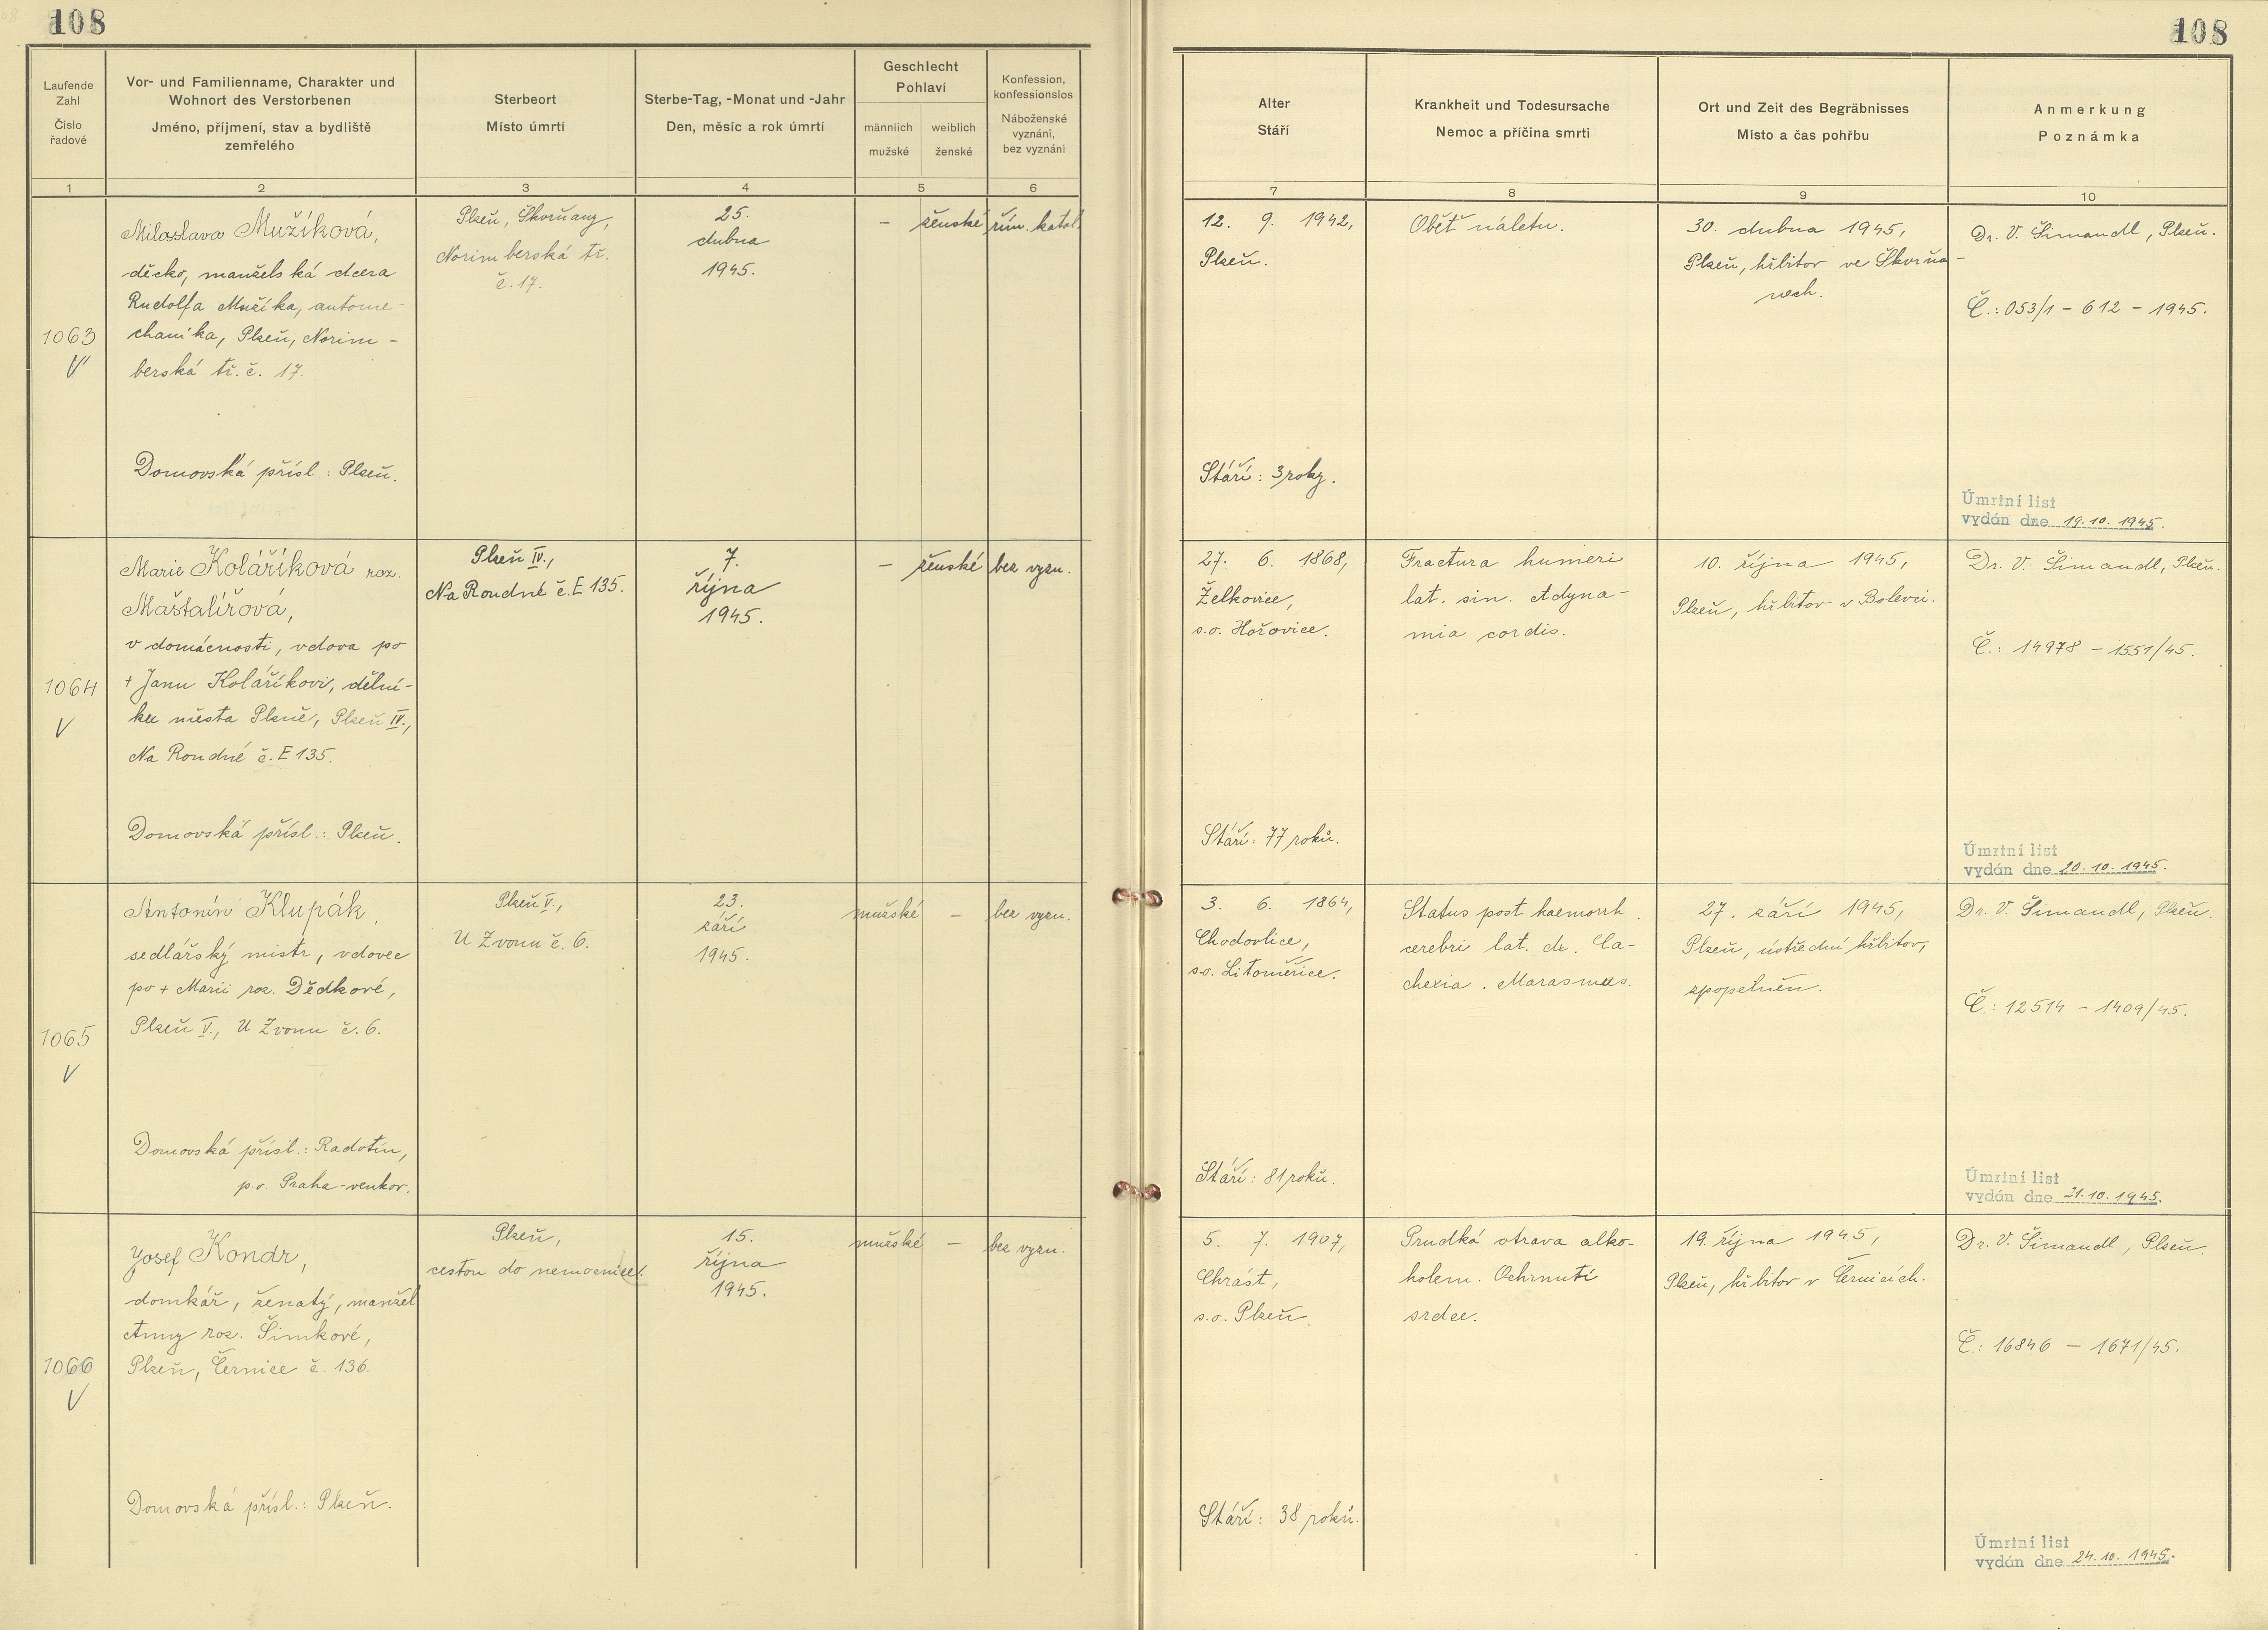 108
108
Laufende
Zahl
Číslo
řadové
Vor- und Familienname, Charakter und
Wohnort des Verstorbenen
Jméno, příjmení, stav a bydliště
zemřelého
Sterbeort
Místo úmrtí
Sterbe-Tag, -Monat und -Jahr
Den, měsíc a rok úmrtí
Geschlecht
Pohlaví
männlich
mužské
weiblich
ženské
Konfession,
konfessionslos
Náboženské
vyznání,
bez vyznání
Alter
Stáří
Krankheit und Todesursache
Nemoc a příčina smrti
Ort und Zeit des Begräbnisses
Místo a čas pohřbu
Anmerkung
Poznámka
1 2 3 4 5 6 7 8 9 10
1063
V
Miloslava Mužíková,
děcko, manželská dcera
Rudolfa Mužíka, autome-
chanika, Plzeň, Norim-
berská tř. č. 17.
Domovská přísl.: Plzeň.
Plzeň, Škvrňany,
Norimberská tř.
č. 17.
25.
dubna
1945.
– ženské
řím. katol.
12. 9. 1942,
Plzeň.
Stáří: 3 roky.
Oběť náletu.
30. dubna 1945,
Plzeň, hřbitov ve Škvrňa-
nech.
Dr. V. Šimandl, Plzeň.
Č.: 053/1 - 612 - 1945.
Úmrtní list
vydán dne 19. 10. 1945.
1064
V
Marie Koláříková roz.
Maštalířová,
v domácnosti, vdova po
+ Janu Koláříkovi, dělní-
ku města Plzně, Plzeň IV.,
Na Roudné č. E 135.
Domovská přísl.: Plzeň.
Plzeň IV.,
Na Roudné č. E 135.
7.
října
1945.
– ženské
bez vyzn.
27. 6. 1868,
Želkovice,
s.o. Hořovice.
Stáří: 77 roků.
Fractura humeri
lat. sin. Adyna-
mia cordis.
10. října 1945,
Plzeň, hřbitov v Bolevci.
Dr. V. Šimandl, Plzeň.
Č.: 14978 - 1551/45.
Úmrtní list
vydán dne 20. 10. 1945.
1065
V
Antonín Klupák,
sedlářský mistr, vdovec
po + Marii roz. Dědkové,
Plzeň V., U Zvonu č. 6.
Domovská přísl.: Radotín,
p.o. Praha-venkov.
Plzeň V.,
U Zvonu č. 6.
23.
září
1945.
mužské –
bez vyzn.
3. 6. 1864,
Chodovlice,
s.o. Litoměřice.
Stáří: 81 roků.
Status post haemorrh.
cerebri lat. dx. Ca-
chexia. Marasmus.
27. září 1945,
Plzeň, ústřední hřbitov,
zpopelněn.
Dr. V. Šimandl, Plzeň.
Č.: 12514 - 1409/45.
Úmrtní list
vydán dne 21. 10. 1945.
1066
V
Josef Kondr,
domkář, ženatý, manžel
Anny roz. Šimkové,
Plzeň, Černice č. 136.
Domovská přísl.: Plzeň.
Plzeň,
cestou do nemocnice.
15.
října
1945.
mužské –
bez vyzn.
5. 7. 1907,
Chrást,
s.o. Plzeň.
Stáří: 38 roků.
Prudká otrava alko-
holem. Ochrnutí
srdce.
19. října 1945,
Plzeň, hřbitov v Černicích.
Dr. V. Šimandl, Plzeň.
Č.: 16846 - 1671/45.
Úmrtní list
vydán dne 24. 10. 1945.